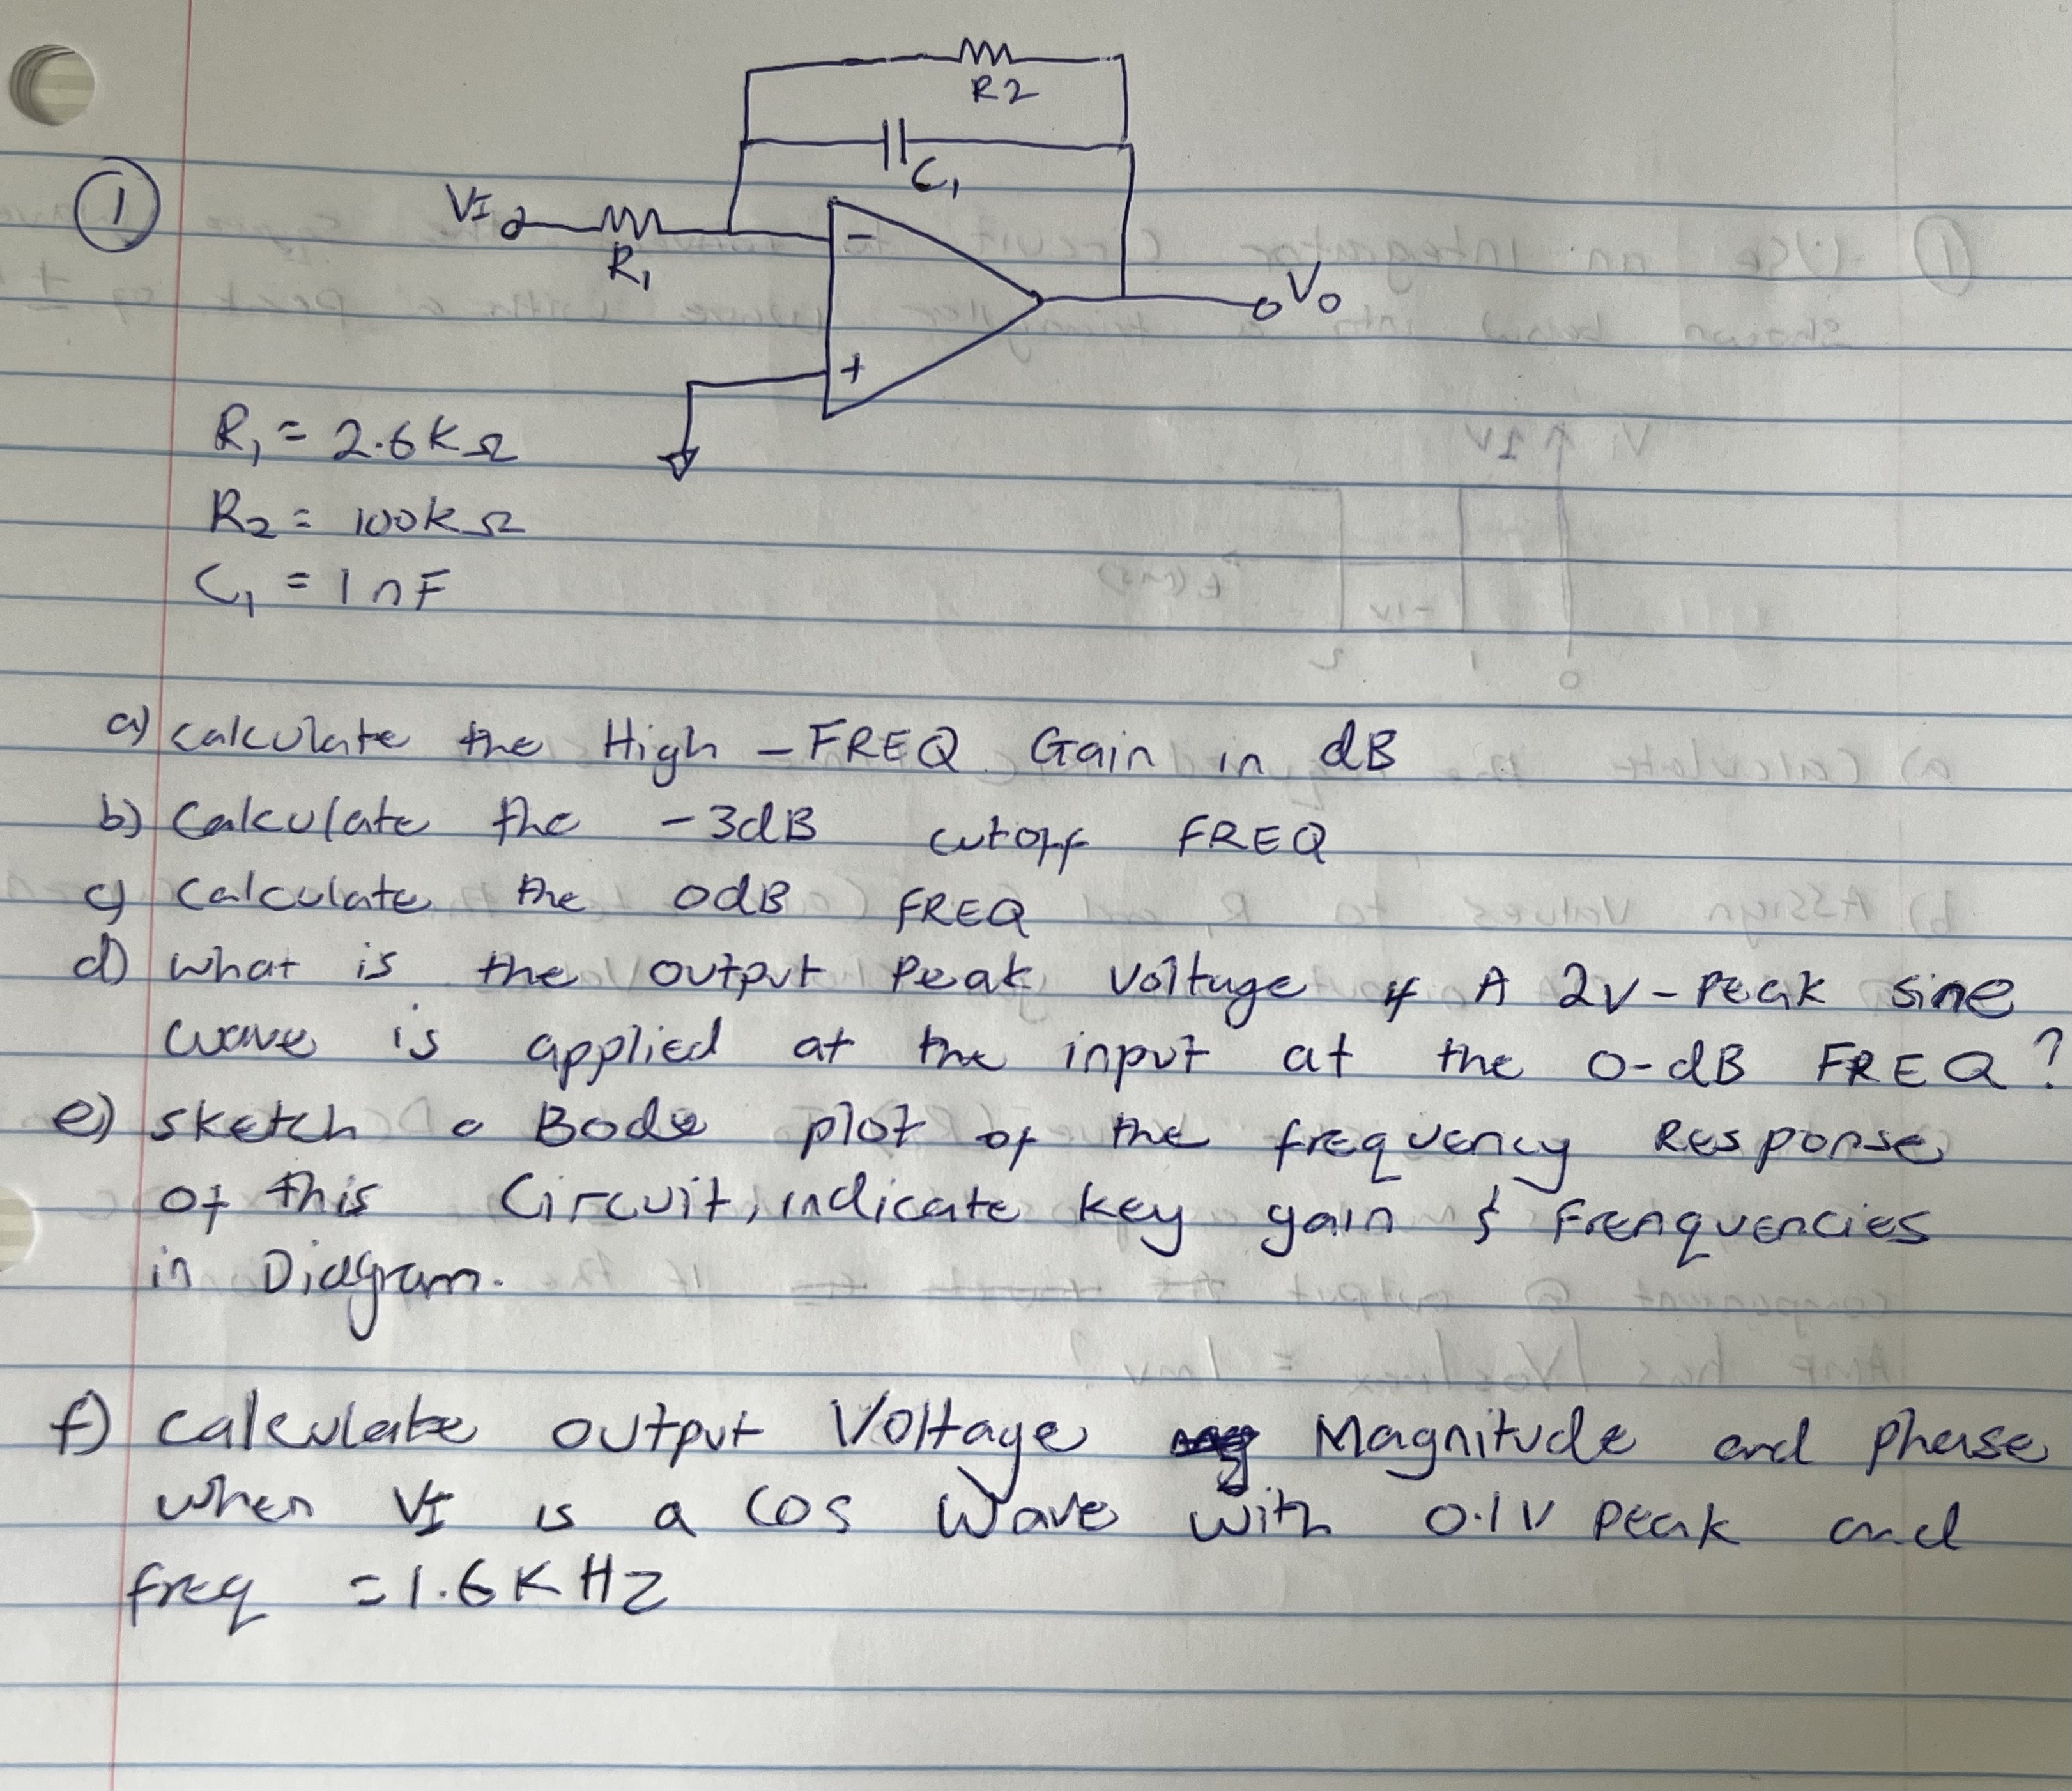 R2
C1
①
VI
R1
-
+
Vo
R1 = 2.6kΩ
R2 = 100kΩ
C1 = 1nF
a) calculate the High - FREQ Gain in dB
b) Calculate the -3dB cutoff FREQ
c) Calculate the 0dB FREQ
d) what is the output Peak Voltage if A 2v-Peak sine
wave is applied at the input at the 0-dB FREQ?
e) sketch a Bode plot of the frequency Response
of this Circuit, indicate key gain & Frenquencies
in Diagram.
f) calculate output Voltage Magnitude and phase
when VI is a cos wave with 0.1V peak and
freq = 1.6KHz